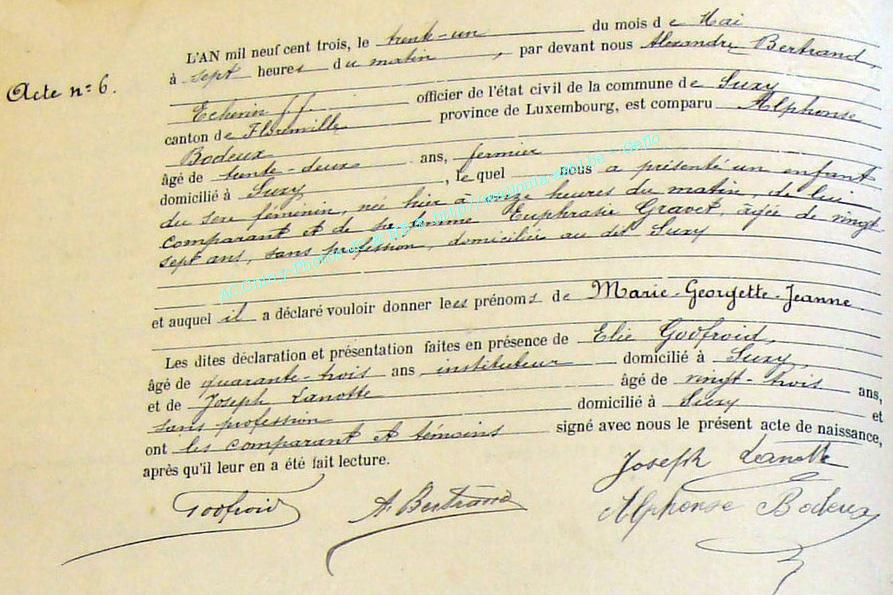 Acte n° 6.
L'AN mil neuf cent trois, le trente-un du mois de Mai
à sept heures du matin, par devant nous Alexandre Bertrand,
Echevin ff. officier de l'état civil de la commune de Suxy
canton de Florenville province de Luxembourg, est comparu Alphonse
Bodeux
âgé de trente-deux ans, fermier
domicilié à Suxy, le quel nous a présenté un enfant
du sexe féminin, née hier à onze heures du matin, de lui
comparant et de sa femme Euphrasie Gravet, âgée de vingt
sept ans, sans profession, domiciliée au dit Suxy
et auquel il a déclaré vouloir donner les prénoms de Marie-Georgette-Jeanne.
Les dites déclaration et présentation faites en présence de Elie Godfroid,
âgé de quarante-trois ans instituteur domicilié à Suxy,
et de Joseph Lanotte âgé de vingt-trois ans,
sans profession domicilié à Suxy et
ont les comparant et témoins signé avec nous le présent acte de naissance,
après qu'il leur en a été fait lecture.
Joseph Lanotte
Godfroid A Bertrand Alphonse Bodeux